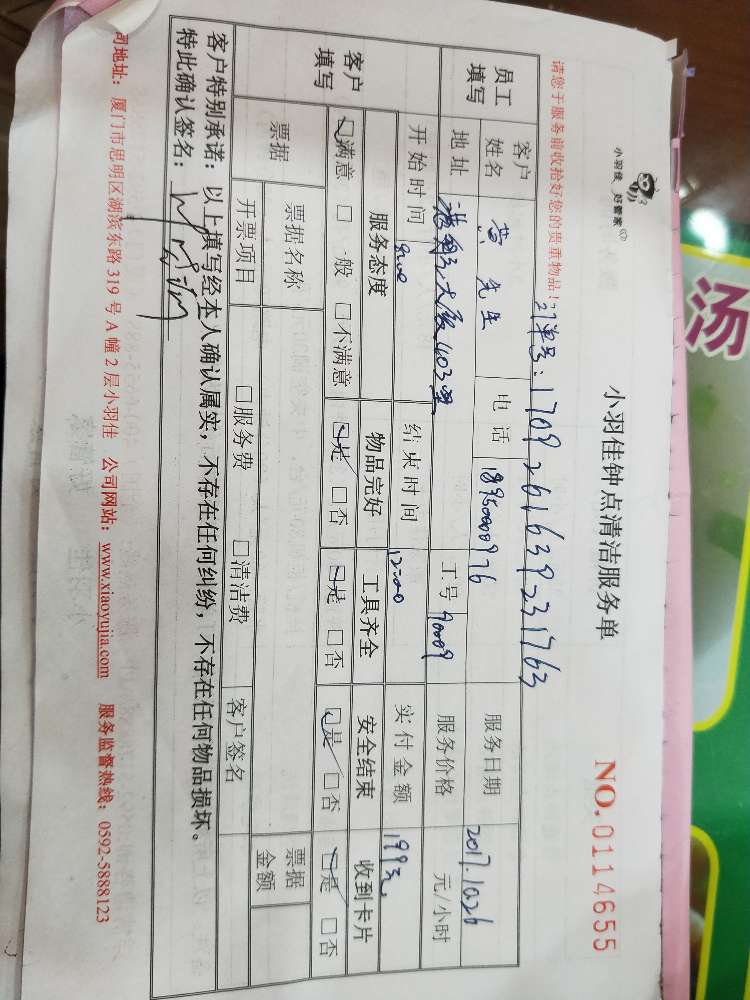 小羽佳 好管家
小羽佳钟点清洁服务单
NO.0114655
请您于服务前收拾好您的贵重物品！
订单号：170926163923 1763
员工填写 客户姓名 黄先生 电话 18950000976 服务日期 2017.10.26
地址 大厦403室 工号 90009 服务价格 元/小时
开始时间 9:00 结束时间 12:00 实付金额 199元
客户填写 服务态度 物品完好 工具齐全 安全结束 收到卡片
☑满意 □一般 □不满意 ☑是 □否 ☑是 □否 ☑是 □否 ☑是 □否
票据 票据名称 票据金额
开票项目 □服务费 □清洁费 客户签名
客户特别承诺：以上填写经本人确认属实，不存在任何纠纷，不存在任何物品损坏。
特此确认签名：
司地址：厦门市思明区湖滨东路319号A幢2层小羽佳 公司网站：www.xiaoyujia.com 服务监督热线：0592-5888123
汤